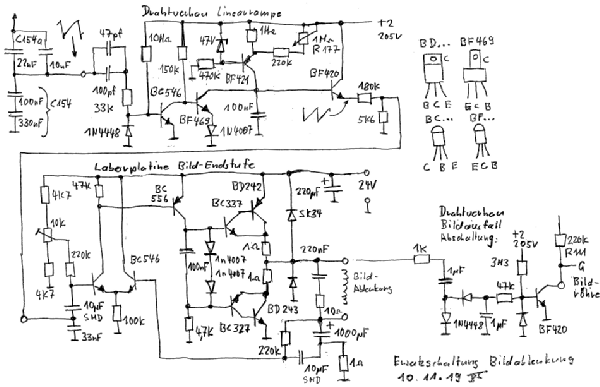 Drahtverhau Linearrampe
C154a
22nF
10nF
47pf
100pf
33K
10MΩ
150K
47V
470K
BF421
1MΩ
220K
1MΩ
R177
+2
205V
BF420
180K
5K6
100nF
330nF
C154
1N4448
BC546
BF469
100nF
1N4007
BD...
BF469
C
C
B C E
E C B
BC...
BF...
C B E
E C B
Labourplatine Bild-Endstufe
4K7
47K
10K
220K
4K7
10µF
SMD
33nF
100K
BC546
BC
556
BC337
BD242
100nF
1n4007
1n4007
1Ω
1Ω
4,7K
BC327
BD243
220µF
24V
SK84
220nF
10Ω
Bild-
Ablenkung
220K
10µF
SMD
1000µF
1Ω
1K
1µF
1N4448
1µF
47K
3M3
+2
205V
Drahtverhau
Bildausfall
Abschaltung:
BF420
220K
R111
G
Bild-
röhre
Ersatzschaltung Bildablenkung
10.11.19